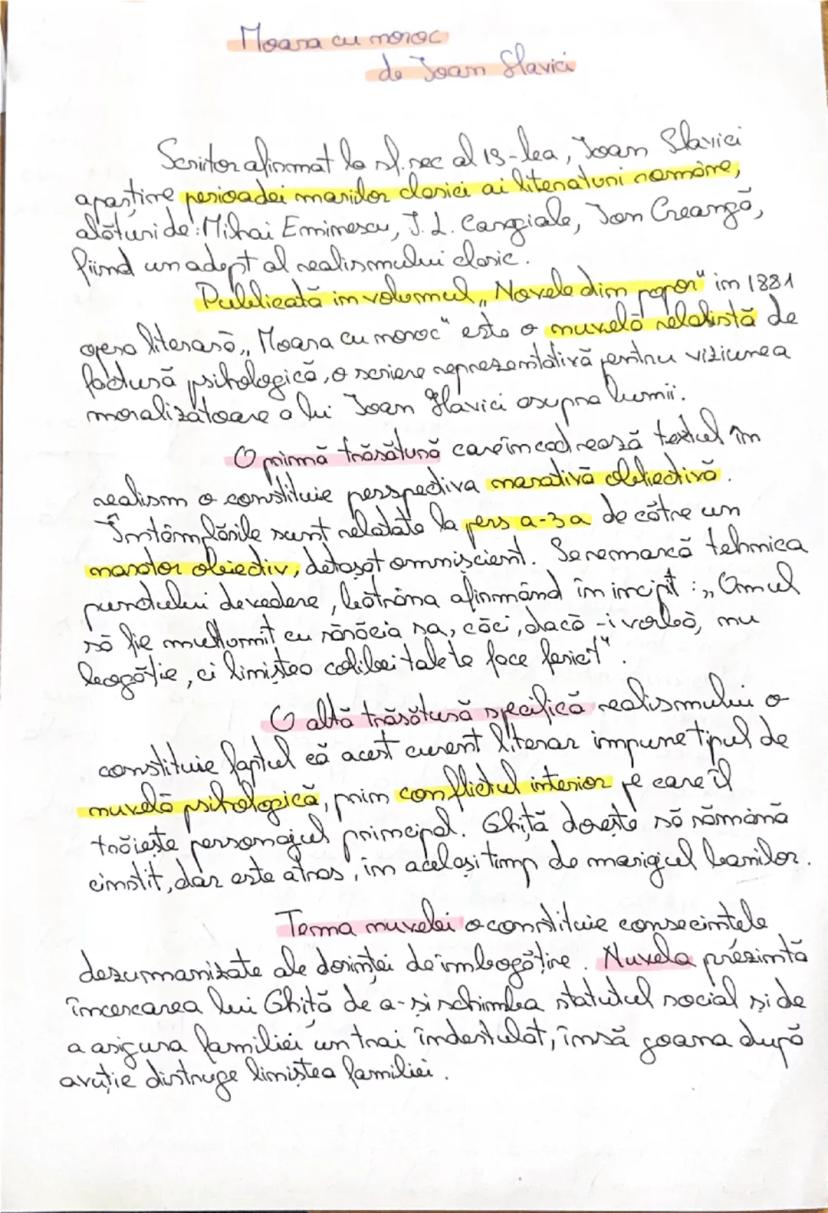 Moara cu noroc
de Ioan Slavici
Scriitor afirmat la sf. sec al 19-lea, Ioan Slavici
aparține perioadei marilor clasici ai literaturii române,
alături de: Mihai Eminescu, I. L. Caragiale, Ion Creangă,
fiind un adept al realismului clasic.
Publicată în volumul „Novele din popor" în 1881
opera literară „Moara cu noroc" este o nuvelă relistă de
factură psihologică, o scriere reprezentativă pentru viziunea
moralizatoare a lui Ioan Slavici asupra lumii.
O primă trăsătură care încadrează textul în
realism o constituie perspectiva narativă obiectivă.
Întâmplările sunt relatate la pers a-3a de către un
narator obiectiv, detașat omniscient. Se remarcă tehnica
punctului de vedere, bătrâna afirmând în incipit: „Omul
să fie mulțumit cu sărăcia sa, căci, dacă-i vorba, nu
bogăție, ci liniștea colibei tale te face fericit".
O altă trăsătură specifică realismului o
constituie faptul că acest curent literar impune tipul de
nuvelă psihologică, prin conflictul interior pe care îl
trăiește personajul principal. Ghiță dorește să rămână
cinstit, dar este atras, în același timp de mirajul banilor.
Tema nuvelei o constituie consecințele
dezumanizate ale dorinței de îmbogățire. Nuvela prezintă
încercarea lui Ghiță de a-și schimba statutul social și de
a asigura familiei un trai îndestulat, însă goana după
avuție distruge liniștea familiei.